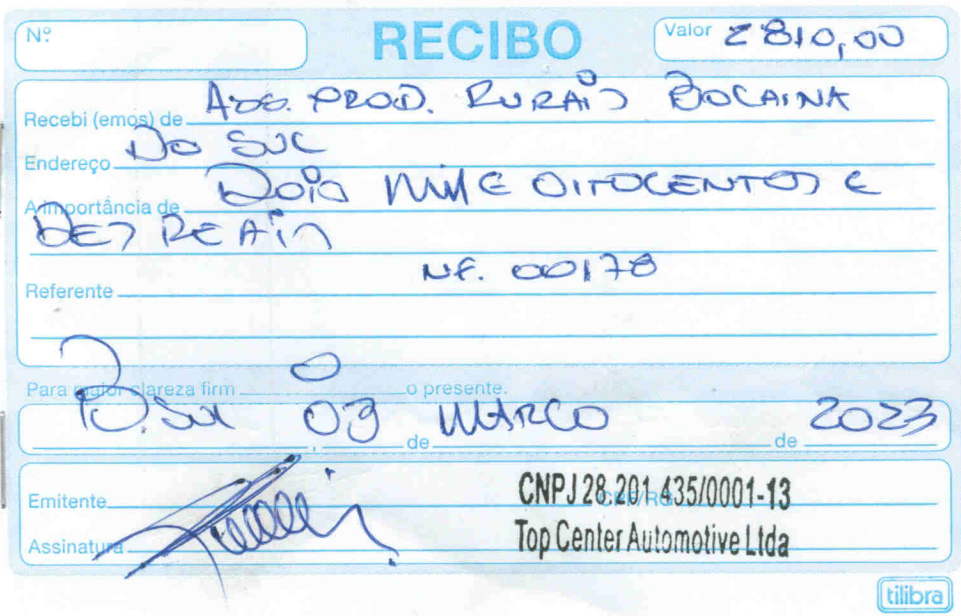 Nº RECIBO Valor 2810,00
Recebi (emos) de Ass. PROD. RURAIS BOCAINA
Endereço DO SUL
A importância de DOIS MIL E OITOCENTOS E
DEZ REAIS
Referente NF. 00178
Para maior clareza firm o o presente.
B. SUL, 03 de MARCO de 2023
Emitente CPF/RG CNPJ 28.201.435/0001-13
Assinatura Top Center Automotive Ltda
tilibra